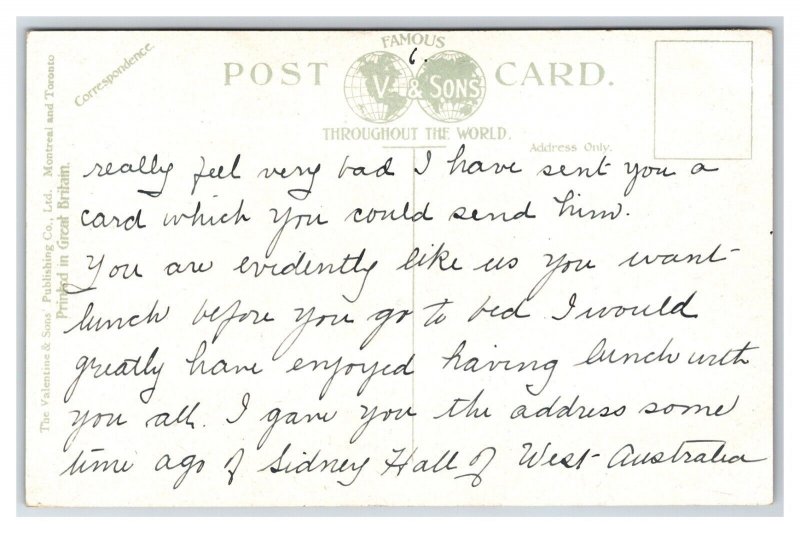 FAMOUS
6.
POST V. & SONS CARD.
THROUGHOUT THE WORLD.
Correspondence.
Address Only.
The Valentine & Sons' Publishing Co., Ltd. Montreal and Toronto
Printed in Great Britain.
really feel very bad I have sent you a
card which you could send him.
You are evidently like us you want
lunch before you go to bed I would
greatly have enjoyed having lunch with
you all. I gave you the address some
time ago of Sidney Hall of West Australia